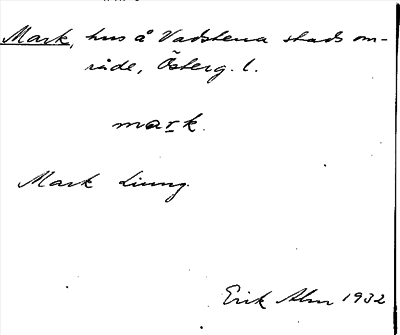 Mark, hus å Vadstena stads om-
råde, Österg. l.
mark.
Mark Ljung.
Erik Alm 1932